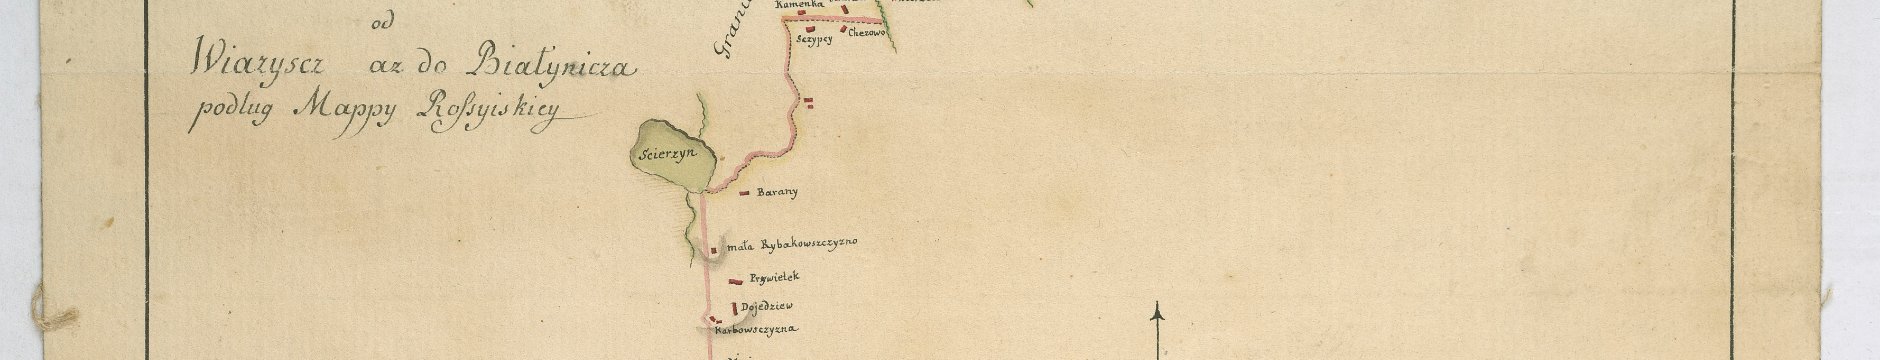 od
Wiazyscz az do Białynicza
podług Mappy Roſsyiskiey
Grani
Kamenka
Sczypcy
Chezowo
Scierzyn
Barany
mała Rybakowszczyzno
Prywietek
Dojedziew
Karbowsczyzna